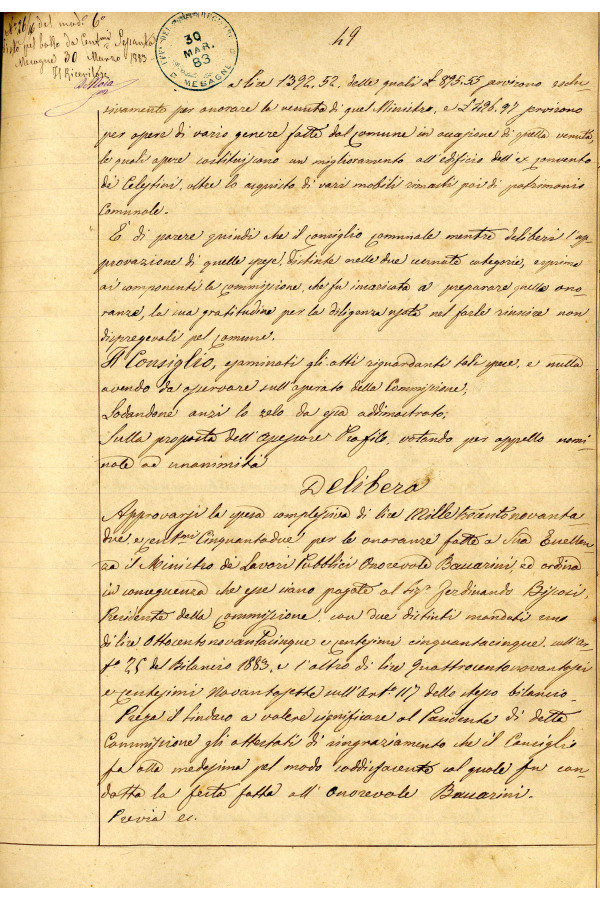 49
N. 26 del mod. 6°
Visto pel bollo da Centmi Sessanta
Mesagne 30 Marzo 1883
Il Ricevitore
30
MAR.
83
MESAGNE
a lire 1392.52, delle quali £ 895.55 servirono esclu-
sivamente per onorare la venuta di quel Ministro, e £ 496.97 servirono
per opere di vario genere fatte dal comune in occasione di quella venuta,
le quali opere costituiscono un miglioramento all'edificio dell'ex convento
de' Celestini, oltre lo acquisto di varii mobili rimasti poi di patrimonio
Comunale.
E' di parere quindi che il consiglio comunale mentre deliberi l'ap-
provazione di quelle spese, distinte nelle due cennate categorie, esprima
ai componenti la commissione, che fu incaricata a preparare quelle ono-
ranze, la sua gratitudine per la diligenza usata nel farle riuscire non
dispregevoli pel comune.
Il Consiglio, esaminati gli atti riguardanti tali spese, e nulla
avendo da osservare sull'operato della Commissione;
Lodandone anzi lo zelo da essa addimostrato;
Sulla proposta dell'Assessore Profilo, votando per appello nomi-
nale ad unanimità
Delibera
Approvarsi la spesa complessiva di lire Milletrecentonovanta-
due e centmi Cinquantadue per le onoranze fatte a Sua Eccellen-
za il Ministro de' Lavori Pubblici Onorevole Baccarini ed ordina
in conseguenza che esse siano pagate al Sigr Ferdinando
Presidente della Commissione, con due distinti mandati uno
di lire Ottocentonovantacinque e centesimi cinquantacinque, sull'ar-
t° 25 del Bilancio 1883, e l'altro di lire Quattrocentonovantasei
e centesimi Novantasette sull'Art° 117 dello stesso bilancio.
Prega il Sindaco a volere significare al Presidente di detta
Commissione gli attestati di ringraziamento che il Consiglio
fa alla medesima pel modo soddisfacente col quale fu con-
dotta la festa fatta all'Onorevole Baccarini.
Previa ec.